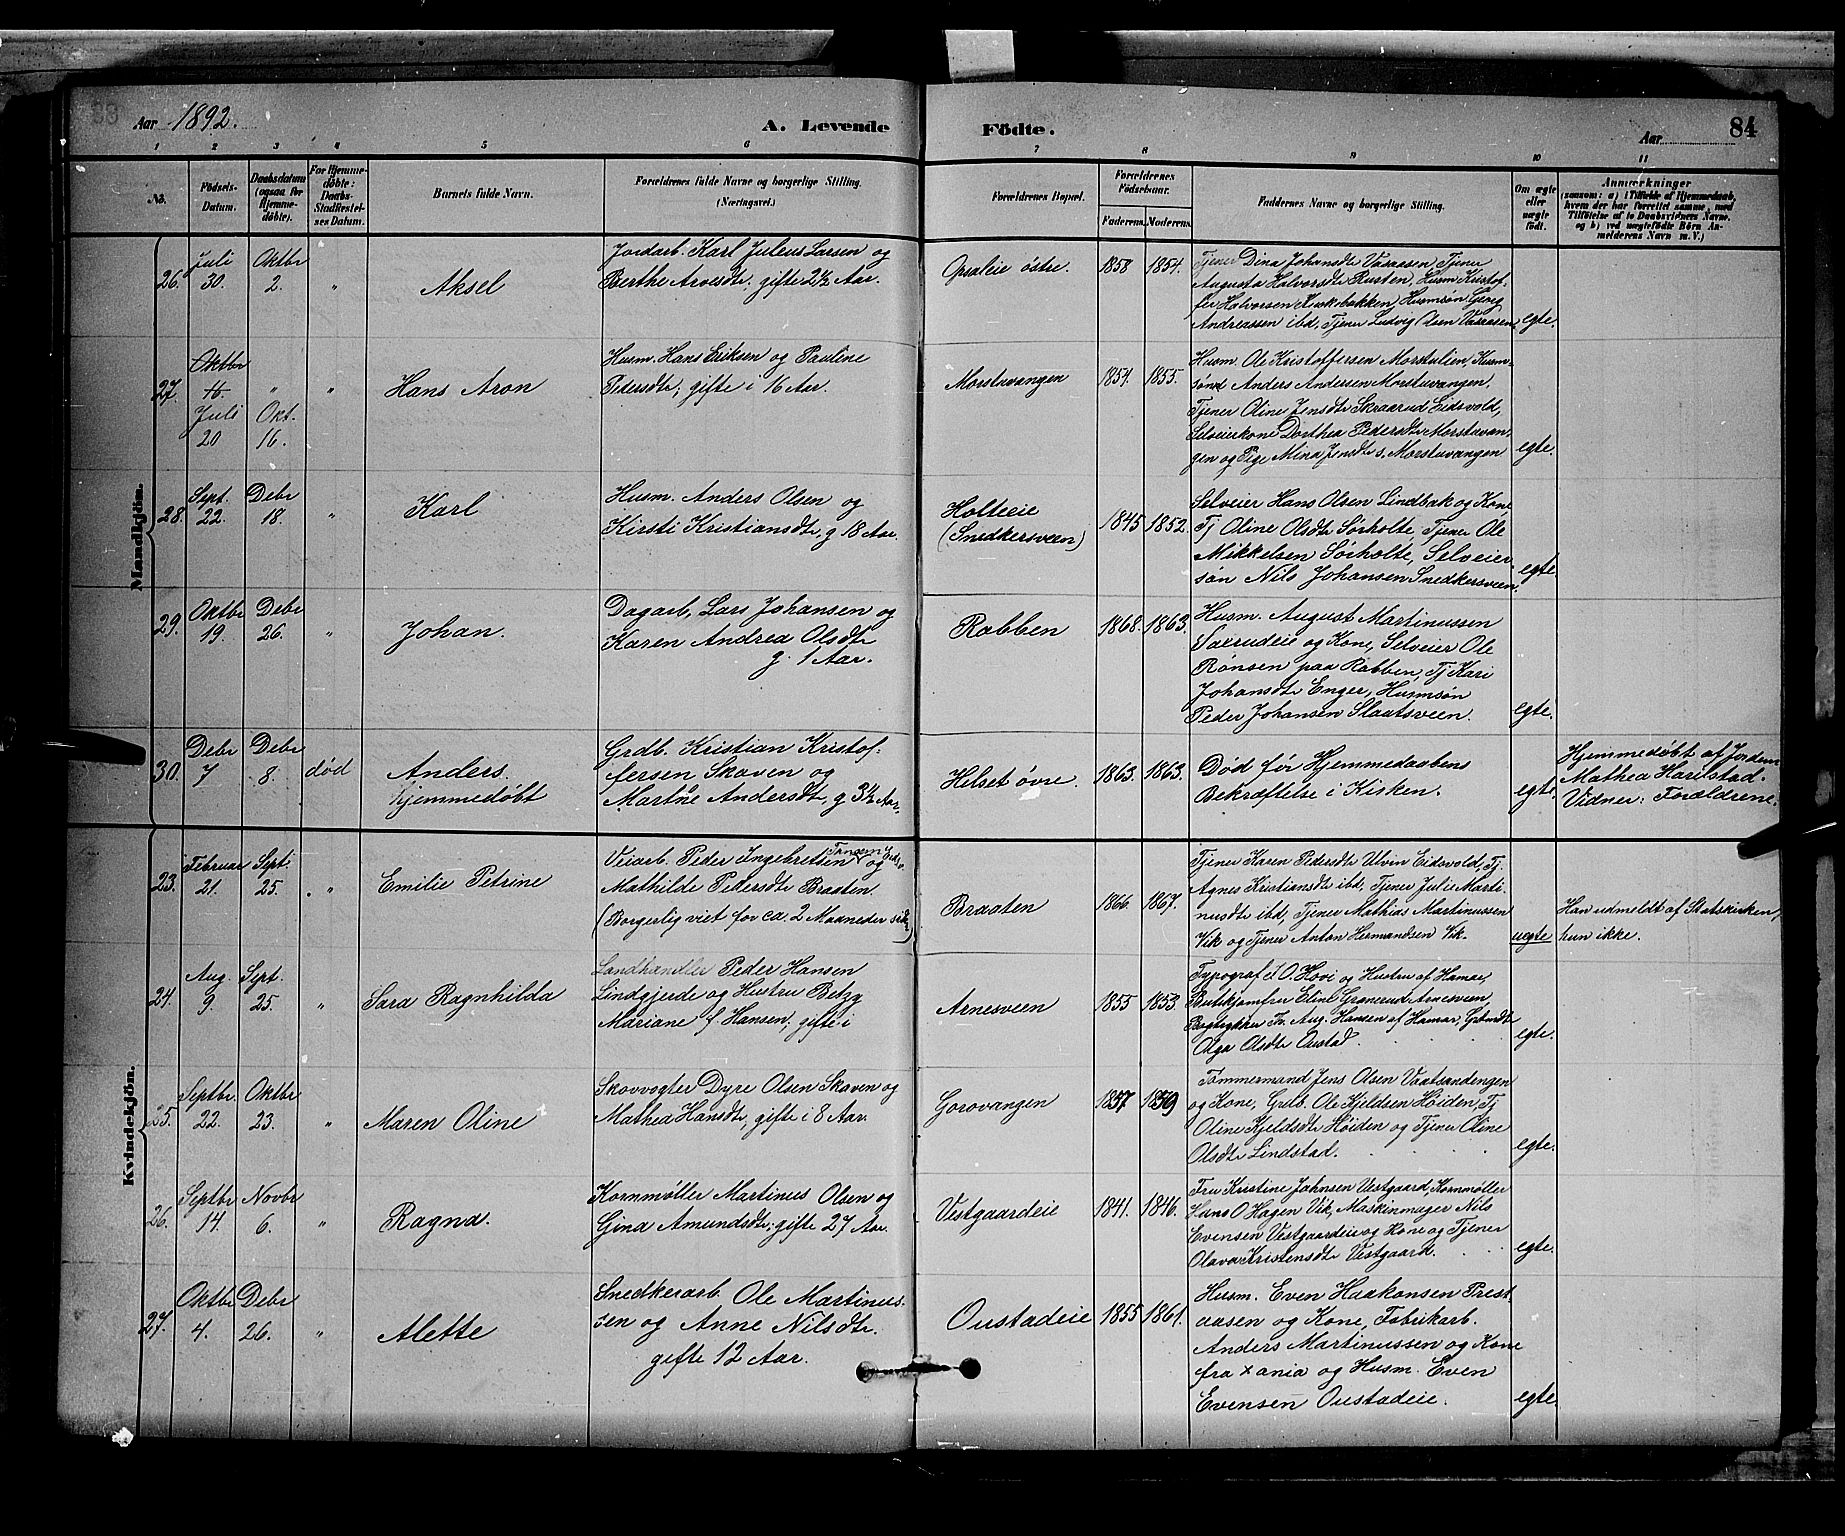 Aar 1892. A. Levende Födte. Aar 84
1 2 3 4 5 6 7 8 9 10 11
No.
Födsels-
Datum.
Daabsdatum
(ogsaa for
Hjemme-
döbte).
For Hjemme-
döbte:
Daabs-
Stadfæstel-
ses Datum.
Barnets fulde Navn.
Forældrenes fulde Navne og borgerlige Stilling.
(Næringsvei.)
Forældrenes Bopæl.
Forældrenes
Födselsaar.
Faderens. Moderens.
Faddernes Navne og borgerlige Stilling.
Om ægte
eller
uægte
födt.
Anmærkninger
(saasom: a) i Tilfælde af Hjemmedaab,
hvem der har forrettet samme, med
Tilföielse af to Daabsvidners Navne,
og b) ved uægtefödte Börn An-
melderens Navn m. V.)
Mandkjön.
26. Juli
30.
Oktbr
2.
"
Aksel
Jordarb. Karl Julius Larsen og
Berthe Arvesdtr, gifte 2½ Aar.
Opsaleie östre.
1858 1854.
Tjener Dina Johansdtr Vaaaasen, Tjener
Augusta Halvorsdtr Rusten, Husm. Kristof-
fer Halvorsen bakken, Husmsön Georg
Andreassen ibd, Tjener Ludvig Olsen Vaaaasen.
egte.
27. Oktbr
Juli
20
" Okt.
16.
"
Hans Aron
Husm. Hans Eriksen og Pauline
Pedersdtr; gifte i 16 Aar.
Morstuvangen
1854. 1855.
Husm. Ole Kristoffersen Morstulien, Husm-
sönd Anders Andersen Morstuvangen,
Tjener Oline Jensdtr Skraarud Eidsvold,
Selveierkone Dorthea Pedersdtr Morstuvan-
gen og Pige Mina Jensdtr s. Morstuvangen
egte.
28. Sept.
22.
Debr
18.
"
Karl
Husm. Anders Olsen og
Kirsti Kristiansdtr, g 18 Aar.
Holteeie
(Snedkersveen)
1845 1852.
Selveier Hans Olsen Lindbak og Kone
Tj Oline Olsdtr Sörholte, Tjener Ole
Mikkelsen Sörholte, Selveier
sön Nils Johansen Snedkersveen.
egte.
29. Oktbr
19.
Debr
26.
"
Johan.
Dagarb. Lars Johansen og
Karen Andrea Olsdtr
g. 1 Aar.
Rabben
1868. 1863.
Husm. August Martinussen
Saxrudeie og Kone, Selveier Ole
Rönsen paa Rabben, Tj Kari
Johansdtr Enger, Husmsön
Peder Johansen Slaatsveen.
egte.
30. Debr
7
Debr
8.
död
Anders.
hjemmedöbt
Grdb. Kristian Kristof-
fersen Skaven og
Martine Andersdtr, g 3½ Aar.
Helset övre.
1863. 1863.
Död för Hjemmedaabens
Bekræftelse i Kirken.
egte.
Hjemmedöbt af Jordem
Mathea Harilstad.
Vidner: Forældrene.
Kvindekjön.
23. Februar
21.
Sept.
25.
"
Emilie Petrine
Veiarb. Peder Ingebretsen Tangen Eidsv. og
Mathilde Pedersdtr Braaten
(Borgerlig viet for ca. 2 Maaneder siden)
Braaten
1866. 1867.
Tjener Karen Pedersdtr Ulvin Eidsvold, Tj.
Agnes Kristiansdtr ibd, Tjener Julie Marti-
nusdtr ibd, Tjener Mathias Martinussen
Vik og Tjener Anton Hermandsen Vik.
uegte
Han udmeldt af Statskirken,
hun ikke.
24. Aug.
9.
Sept.
25.
"
Sara Ragnhilda
Landhandler Peder Hansen
Lindgjerde og Hustru Betzy
Mariane f. Hansen, gifte i
Arnesveen
1855 1853.
Typograf O. Hovi og Hustru af Hamar,
Butikjomfru Eline Granerud Arnesveen,
Bogtrykker Fr. Aug. Hansen af Hamar, Grbmdtr
Olga Olsdtr Oustad.
egte.
25. Septbr.
22.
Oktbr
23.
"
Maren Oline
Skovvogter Dyre Olsen Skaven og
Mathea Hansdtr, gifte i 8 Aar.
Gorovangen
1857 1859
Tömmermand Jens Olsen Vaatsandengen
og Kone, Grdb. Ole Kjeldsen Höiden, Tj
Oline Kjeldsdtr Höiden og Tjener Oline
Olsdtr Lindstad.
egte.
26. Septbr
14.
Novbr
6.
"
Ragna.
Kornmöller Martinus Olsen og
Gina Amundsdtr; gifte 27 Aar.
Vestgaardeie
1841. 1846.
Fru Kristine Johnsen Vestgaard, Kornmöller
O Hagen Vik, Maskinmager Nils
Evensen Vestgaardeie og Kone og Tjener
Olava Kristensdtr Vestgaard.
egte.
27. Oktbr
4.
Debr
26.
"
Alette
Snedkerarb. Ole Martinus-
sen og Anne Nilsdtr.
gifte 12 Aar.
Oustadeie
1855 1861.
Husm. Even Haakonsen Prest-
aasen og Kone, Fabrikarb.
Anders Martinussen og Kone
fra Xania og Husm. Even
Evensen Oustadeie.
egte.